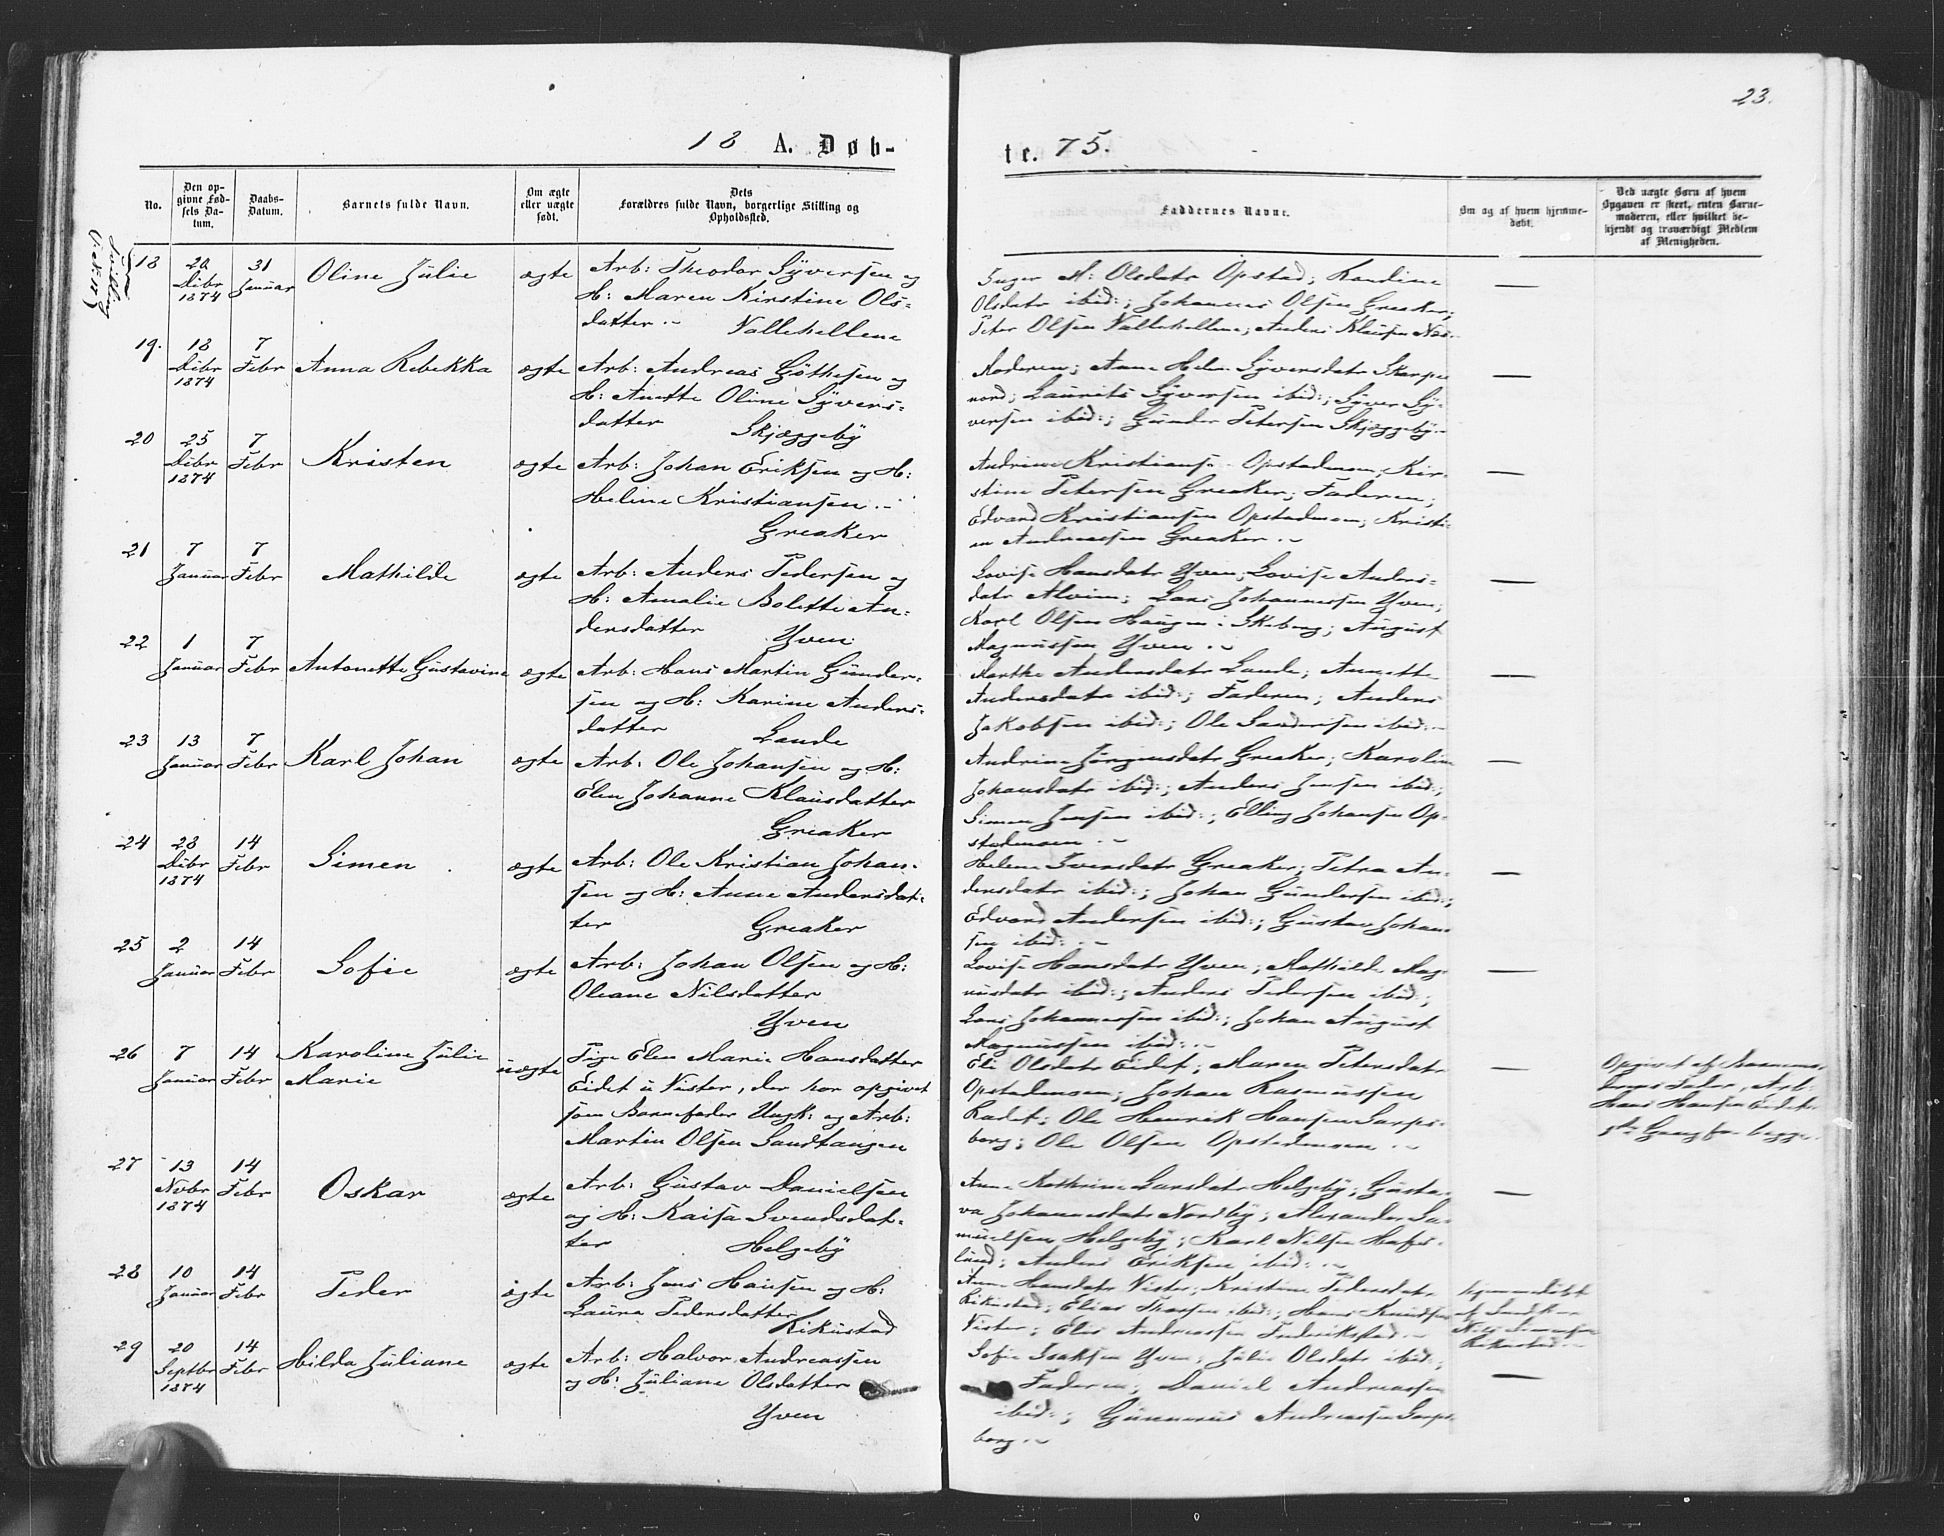 23.
18 A. Døb-
te. 75.
No.
Den op-
givne Fød-
sels Da-
tum.
Daabs-
Datum.
Barnets fulde Navn.
Om ægte
eller uægte
født.
Dets
Forældres fulde Navn, borgerlige Stilling og
Opholdssted.
Faddernes Navne.
Om og af hvem hjemme-
døbt.
Ved uægte Børn af hvem
Opgaven er skeet, enten Barne-
moderen, eller hvilket be-
kjendt og troværdigt Medlem
af Menigheden.
18
20
Dcbr
1874
31
Januar
Oline Julie
ægte
Arb: Theodor Syversen og
H: Maren Kirstine Ols-
datter .- Vallehellene
Inger M: Olsdatr Opstad; Kardine
Olsdatr ibid:; Johannes Olsen Greaker;
Peter Olsen Vallehellene; Anders Klausen
19.
18
Dcbr
1874
7
Febr
Anna Rebekka
ægte
Arb: Andreas Gøthesen og
H: Anette Oline Syvers-
datter Skjæggeby
Moderen; Anne Helene Syversdatr Skarpe
nord; Laurits Syversen ibid:; Syver Sy-
versen ibid:; Gunder Petersen Skjæggeby.-
20
25
Dcbr
1874
7
Febr
Kristen
ægte
Arb: Johan Eriksen og H:
Heline Kristiansen .-
Greaker
Andrine Kristians. Opstadmoen; Kir-
stine Petersen Greaker; Faderen;
Edvard Kristiansen Opstadmoen; Kristi-
an Andreassen Greaker .-
21
7
Januar
7
Febr
Mathilde
ægte
Arb: Anders Pedersen og
H: Amalie Bolette An-
dersdatter Yven
Lovise Hansdatr Yven; Lovise Anders-
datr Alvim; Lars Johannessen Yven;
Karl Olsen Haugen i Skeberg; August
Magnussen Yven .-
22
1
Januar
7
Febr
Antonette Gustavine
ægte
Arb: Hans Martin Gunder-
sen og H: Karine Anders-
datter Lande
Marthe Andersdatr Lande; Annette
Andersdatr ibid:; Faderen; Anders
Jakobsen ibid:; Ole Sandersen ibid:.-
23
13
Januar
7
Febr
Karl Johan
ægte
Arb: Ole Johansen og H:
Elen Johanne Klausdatter
Greaker
Andrine Jørgensdatr Greaker; Karoline
Johansdatr ibid:; Anders Jensen ibid:;
Simen Jensen ibid:; Elling Johansen Op-
stadmoen .-
24
28
Dcbr
1874
14
Febr
Simen
ægte
Arb: Ole Kristian Johan-
sen og H: Anne Andersdat-
ter Greaker
Helene Svensdatr Greaker; Petra An-
dersdatr ibid:; Johan Gundersen ibid:;
Edvard Andersen ibid:; Gustav Johan-
sen ibid: .-
25
2
Januar
14
Febr
Sofie
ægte
Arb: Johan Olsen og H:
Oleane Nilsdatter
Yven
Lovise Hansdatr Yven; Mathilde Mag-
nusdatr ibid:; Anders Pedersen ibid:;
Lars Johannessen ibid:; Johan August
Magnussen ibid: .-
26
7
Januar
14
Febr
Karoline Julie
Marie
uægte
Pige Elen Marie Hansdatter
Eidet u Vister, der har opgivet
som Barnefader Ungk: og Arb:
Martin Olsen Sandtangen
Eli Olsdatr Eidet; Maren Petersdatr
Opstadmoen; Johan Rasmussen
Radet; Ole Henrik Hansen Sarps-
borg; Ole Olsen Opstadmoen .-
Opgivet af Barnemo-
derens Fader, Arb:
Hans Hansen Eidet.
1ste Gang for begge.
27
13
Nvbr
1874
14
Febr
Oskar
ægte
Arb: Gustav Danielsen
og H: Kaisa Svendsdat-
ter Helgeby
Anne Kathrine Larsdatr Helgeby; Gusta-
va Johannesdatr Nordby; Alexander Sa-
muelsen Helgeby; Karl Nilsen Hafs-
lund; Anders Eriksen ibid: .-
28
10
Januar
14
Febr
Peder
ægte
Arb: Jens Hansen og H:
Laura Pedersdatter
Rikustad
Anne Hansdatr Vister; Kristine Pedersdatr
Rikustad; Elias Thorsen ibid:; Hans Knudsen
Vister; Elis Andreassen Frederikstad .-
Hjemmedøbt
af
Nils Simensen
Rikustad .-
29
20
Septbr
1874
14
Febr
Hilda Juliane
ægte
Arb: Halvor Andreassen
og H: Juliane Olsdatter
Yven
Sofie Isaksen Yven; Julie Olsdatr ibid:;
Faderen; Daniel Andreassen
ibid:; Gunnerus Andreassen Sarps-
borg .-